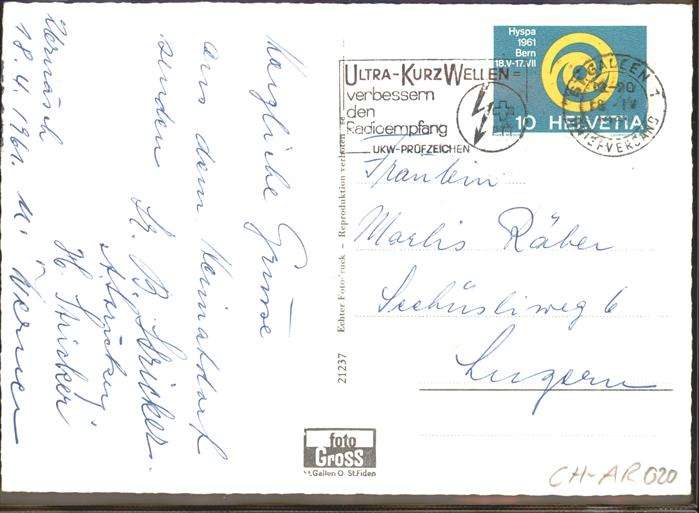 Hyspa
1961
Bern
18.V-17.VII
10 HELVETIA
ST. GALLEN 1
BRIEFVERSAND
ULTRA-KURZWELLEN =
verbessern
den
Radioempfang
UKW-PRÜFZEICHEN
Fräulein
Marlis Räber
Seehüsliweg 6
Luzern
Herzliche Grüsse
aus dem Heimatdorf
senden
B. Stricker.
H. Stricker
18.4.1961.
Echter Fotodruck - Reproduktion verboten
21237
foto
Gross
St.Gallen O - St.Fiden
CH-AR 020